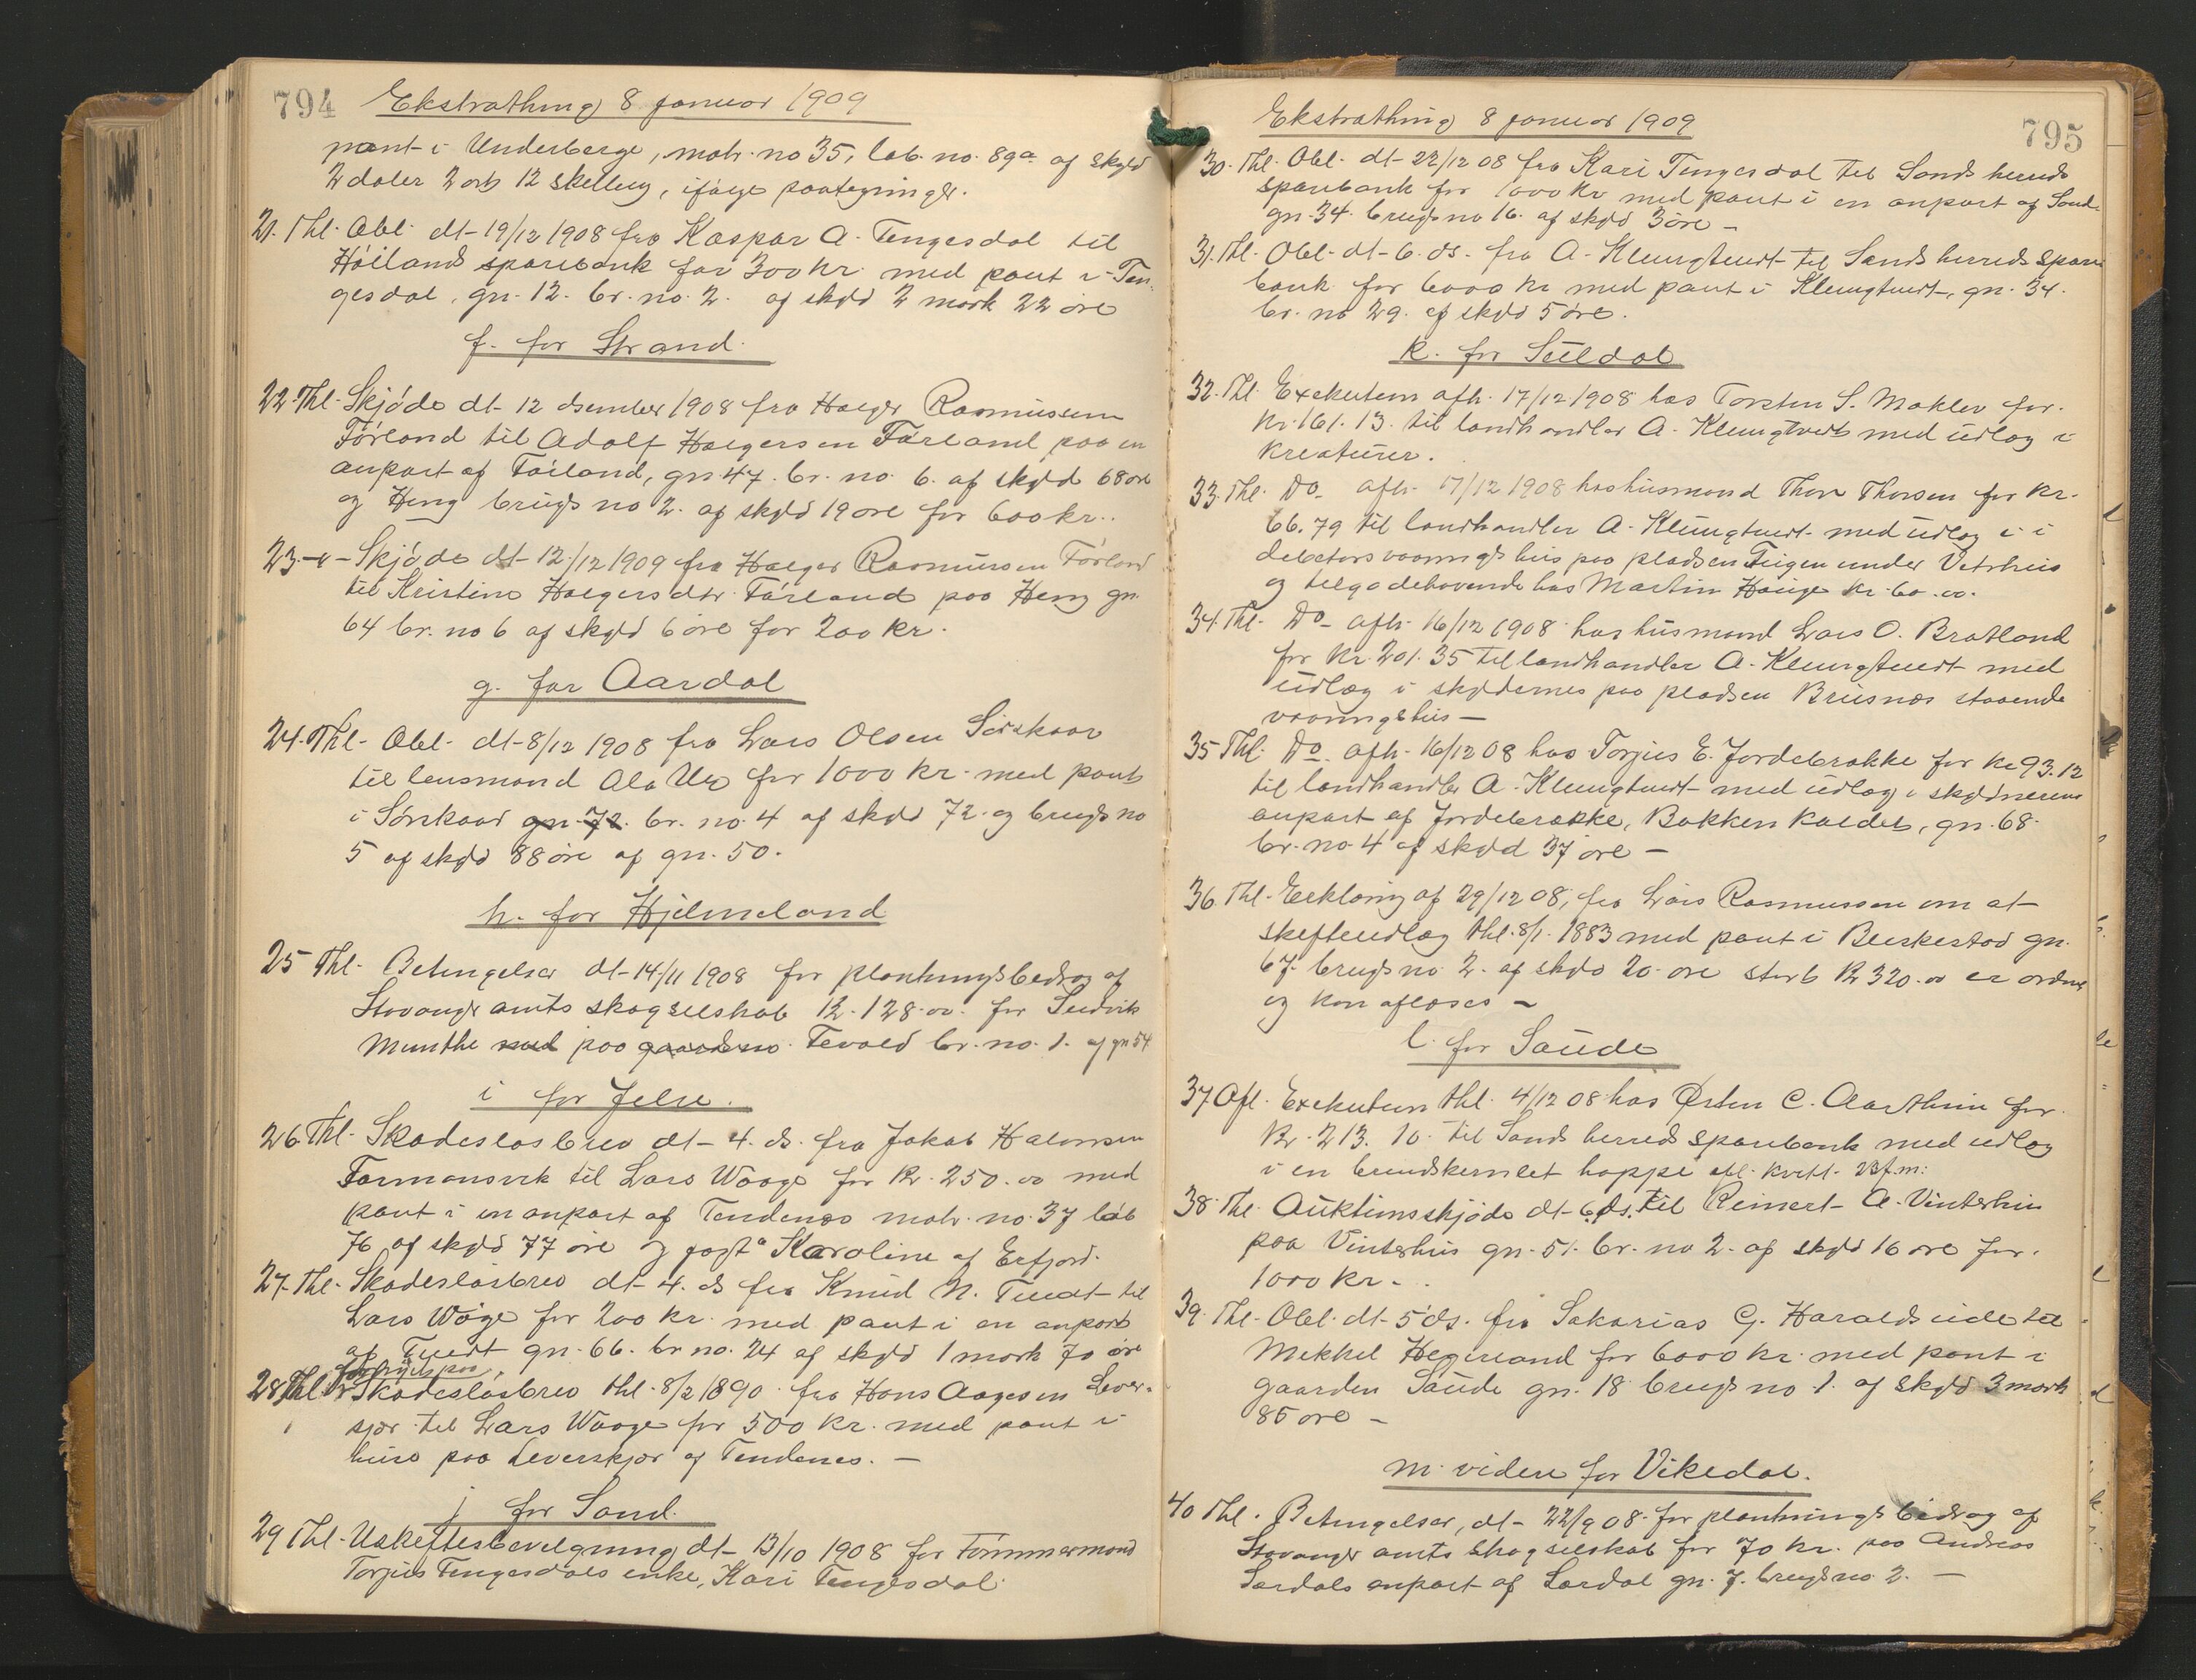 794 Ekstrathing 8 januar 1909
pant i Underberge, matr. no 35, løb. no. 89a af skyld
2 daler 2 ort 12 skelling, ifølge paategninger.
21. Thl. Obl. dt- 19/12 1908 fra Kaspar A. Tengesdal til
Höilands sparebank for 300 kr. med pant i Ten-
gesdal, gn. 12. br. no. 2. af skyld 2 mark 22 øre
f. for Strand.
22. Thl- Skjöde dt- 12 dsember 1908 fra Holger Rasmussen
Förland til Adolf Holgersen Förland paa en
anpart af Förland, gn 47. br. no. 6. af skyld 68 øre
og Heng brugs no 2. af skyld 19 øre for 600 kr..
23 -"- Skjöde dt- 12/12 1909 fra Holger Rasmussen Förland
til Kristine Holgersdtr Förland paa Heng gn.
64 br. no 6 af skyld 6 øre for 200 kr.
g. for Aardal
24. Thl- Obl- dt- 8/12 1908 fra Lars Olsen Sörskaar
til lensmand Ola for 1000 kr. med pant
i Sörskaar gn. 72. br. no. 4 af skyld 72. og brugs no
5 af skyld 88 øre af gn. 50.
h. for Hjelmeland
25 Thl- Betingelser dt- 14/11 1908 for plantningsbedrag af
Stavanger amts skogselskab 12. 128.00. for
Munthe med paa gaards no. Tevold br. no. 1. af gn 54
i for Jelse.
26 Thl- Skadeslösbrev dt- 4. ds. fra Jakob Halvorsen
Formansvik til Lars Waage for Kr. 250.00 med
pant i en anpart af Tendenes matr. no. 37 löb
76 af skyld 77 øre og jagt "Karoline af Erfjord.
27. Thl- Skadeslösbrev dt- 4. ds fra Knud N. Tuedt til
Lars Wåge for 200 kr. med pant i en anpart
af Tuedt gn. 66. br no. 24 af skyld 1 mark 70 øre
paa
28 Thl. Skadeslösbrev thl. 8/2 1890. fra Hans Aagesen Lever-
sjær til Lars Waage for 500 kr. med pant i
huse paa Leverskjær af Tendenes. —
j for Sand.
29 Thl- Uskeftesbevelgning dt- 13/10 1908 for Tömmermand
Torjus Tengesdals enke, Kari Tengesdal.
Ekstrathing 8 januar 1909 795
30. Thl. Obl. dt- 22/12 08 fra Kari Tengesdal til Sands herreds
sparebank for 1000 kr med pant i en anpart af Sand
gn. 34. brugs no 16. af skyld 3 øre —
31. Thl. Obl- dt- 6. ds. fra A. Klungtuedt til Sands herreds spare
bank for 6000 kr med pant i Klungtuedt, gn. 34.
br. no 29. af skyld 5 øre.
k. for Suldal
32. Thl. Exekution afh. 17/12 1908 hos Torsten S. Moklev for
Kr. 161.13. til landhandler A. Klungtvedt med udlæg i
Kreaturer.
33. Thl. Do- afh- 17/12 1908 hos husmand Thore Thorsen for Kr.
66.79 til landhandler A. Klungtuedt med udlæg i i
debetors vaaningshus paa pladsen Teigen under Vetrhus
og tilgodehavende hos Martin Hauge Kr. 60.00.
34. Thl- Do- afh- 16/12 1908 hos husmand Lars O. Bratland
for Kr. 201.35 til landhandler A. Klungtuedt med
udlæg i skyldernes paa pladsen Brusnes staaende
vaaningshus —
35 Thl. Do- afh- 16/12 08 hos Torjus E. Jordebrække for Kr 93.12
til landhandler A. Klungtuedt med udlæg i skyldnerens
anpart af Jordebrække, Bakken kaldet, gn. 68.
br. no. 4 af skyld 37 øre —
36. Thl- Erklæring af 29/12 08, fra Lars Rasmussen om at
skefteudlæg thl. 8/1. 1883 med pant i Bleskestad gn.
67. brugs no. 2. af skyld 20. øre stort Kr 320.00 er ordnet
og kan aflæses —
l. for Saude
37. Afl. Exekution thl. 4/12 08 hos Østen C. Aartun for
Kr. 213. 10. til Sands herreds sparebank med udlæg
i en brundskernlet hoppe afl. kvitt. 23 f.m:
38. Thl. Auktionsskjöde dt- 6. ds. til Reinert A. Vinterhus
paa Vinterhus gn. 51. br. no 2. af skyld 16 øre for
1000 kr -.
39. Thl- Obl. dt- 5 ds. fra Sakarias G. Haraldseide til
Mekkel Hegerland for 6000 kr. med pant i
gaarden Saude gn. 18. brugs no 1. af skyld 3 mark
85 øre —
m. videre for Vikedal.
40 Thl. Betingelser, dt- 22/9 08. for plantnings bidrag af
Stavanger amts skogselskab for 70 kr. paa Andreas
Lærdals anpart af Lærdal gn. 7. brugs no. 2. —